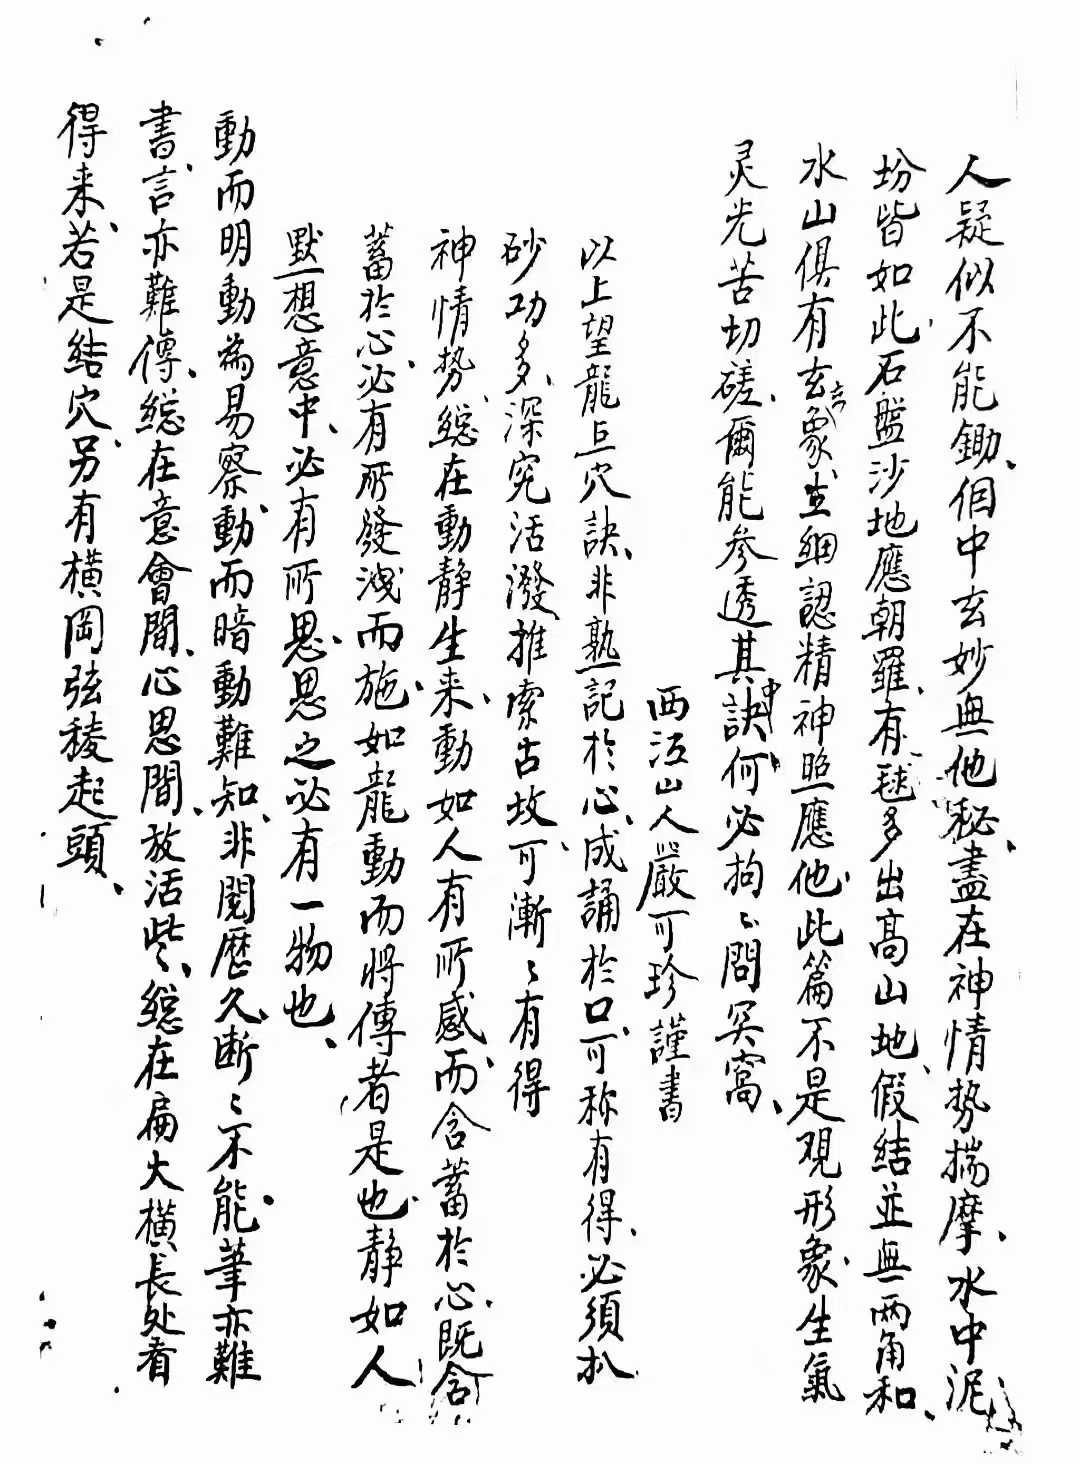 人疑似不能鋤、個中玄妙無他秘、盡在神情势揣摩、水中泥
坋皆如此、石盤沙地應朝羅、有毬多出高山地、假結並無两角和、
水山俱有玄玄象、生細認精神照應他、此篇不是观形象、生氣
灵光苦切磋、爾能參透其中訣、何必拘〻問冥窩、
西江山人嚴可珍謹書
以上望龍点穴訣、非熟記於心、成誦於口、可称有得、必須扒
砂功多、深究活潑、推索古坟、可漸〻有得
神情势、縂在動静生来、動如人有所感、而含蓄於心、既含
蓄於心、必有所發洩而施、如龍動而將傳者是也、静如人
默想意中、必有所思、思之必有一物也、
動而明動為易察、動而暗動難知、非閱歷久、断〻不能、筆亦難
書、言亦難傳、縂在意會間、心思間、放活些、縂在扁大橫長处看
得来、若是結穴、另有橫岡弦稜起頭、